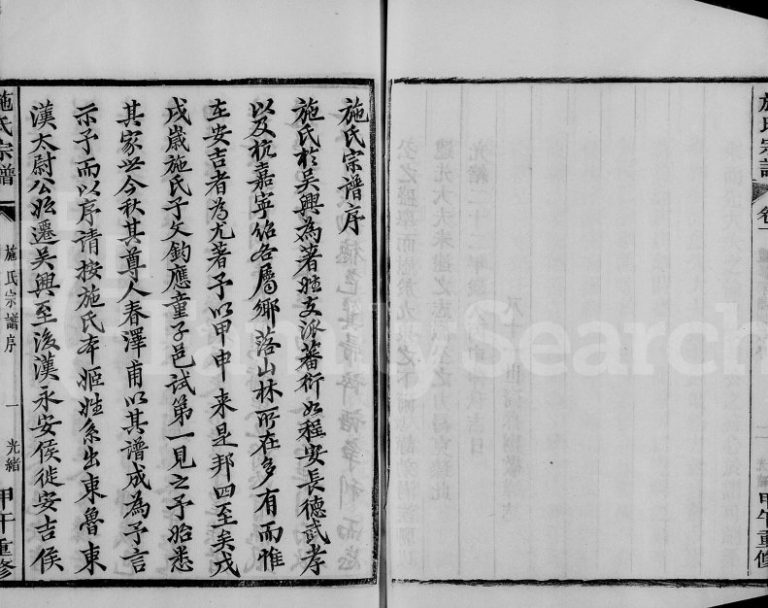 施氏宗譜
卷一
甲午重修
施氏宗譜序
施氏於吳興為著姓支派蕃衍如程安長德武孝
以及杭嘉寧紹各屬鄉落山林所在多有而惟
在安吉者為尤著予以甲申来是邦四至矣戊
戌歳施氏子文鈞應童子邑試第一見之予始悉
其家世今秋其尊人春澤甫以其譜成為予言
示予而以序請按施氏本姬姓系出東魯東
漢太尉公始遷吳興至後漢永安侯徙安吉侯
施氏宗譜
施氏宗譜序
一
光緒
甲午重修
FamilySearch